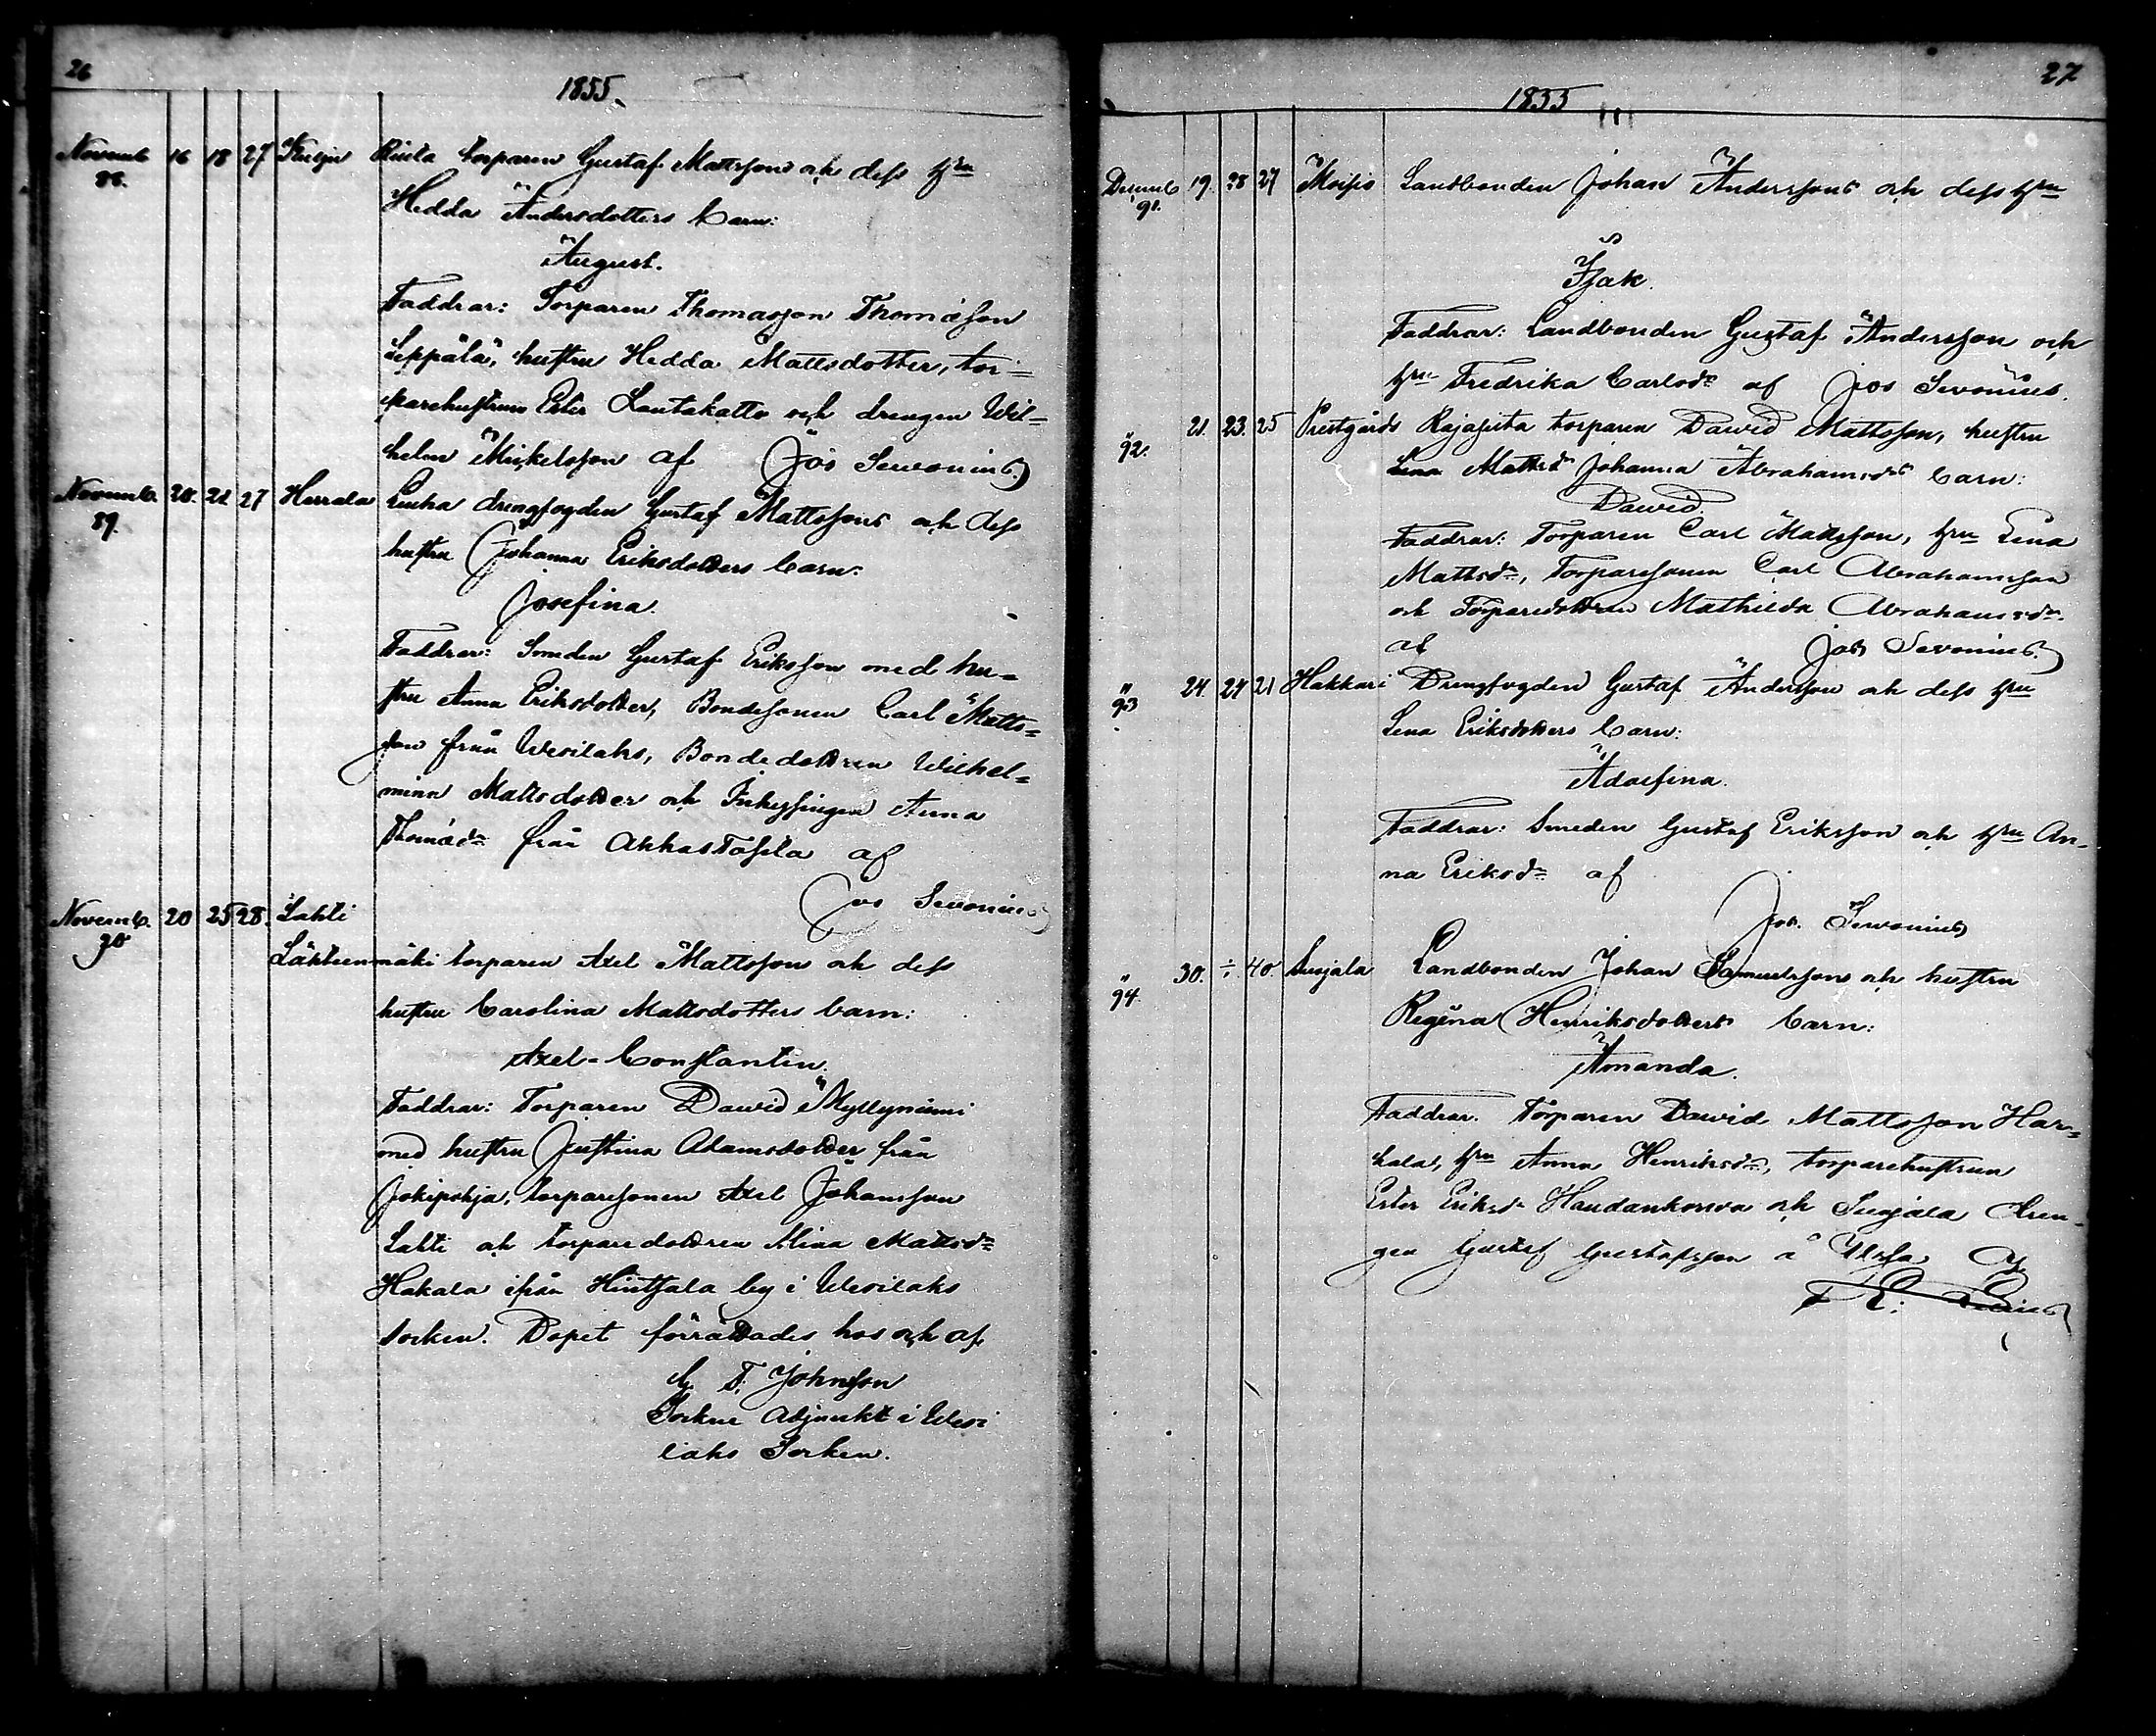 26
1855.
Novemb 16 18 27 Kulju Rusla torparen Gustaf Mattssons och dess hru
88.
Hedda Andersdotters barn:
August.
Faddrar: Torparen Thomasson Thomasson
Seppälä, hustru Hedda Mattsdotter, tor=
parehustrun Ester Lautakatto och drengen Wil=
helm Mickelsson af Jos Sevonius
Novemb. 20. 21 27 Herrala drengfogden Gustaf Mattssons och dess
89.
hustru Johanna Eriksdotters barn:
Josefina.
Faddrar: Smeden Gustaf Eriksson med hu=
stru Anna Eriksdotter, Bondesonen Carl Matts=
son från Wesilaks, Bondedottren Wilhel=
mina Mattsdotter och Inhysingen Anna
Thomasdr från Akkas Toxela af
Jos Sevonius
Novemb. 20 25 28. Lahti
90
Lähteenmäki torparen Axel Mattsson och dess
hustru Carolina Mattsdotters barn:
Axel-Constantin.
Faddrar: Torparen Dawid Myllyniemi
med hustru Justina Adamsdotter från
Jokipohja, torparesonen Axel Johansson
Lahti och torparedottren Mina Mattsdr
Hakala ifrån Hintsala by i Wesilaks
socken. Dopet förrättades hos och af
C. F. Johnsson
Sockne Adjunkt i Wesi
laks Socken.
27
1855
Decemb 19. 28 27 Moisio Landbonden Johan Anderssons och dess hru
91.
Isak.
Faddrar: Landbonden Gustaf Andersson och
hru Fredrika Carlsdr af Jos Sevonius.
" 21. 23. 25 Prestgårds Rajasuta torparen Dawid Mattsson, hustru
92.
Lena Mattsdr Johanna Abrahamsdrs barn:
Dawid.
Faddrar: Torparen Carl Mattsson, hru Lena
Mattsdr, Torparesonen Carl Abrahamsson
och Torparedottren Mathilda Abrahamsdr
af Jos Sevonius.
" 24. 24 21 Hakkari Drengfogden Gustaf Andersson och dess hru
93
Lena Eriksdotters barn:
Adolfina.
Faddrar: Smeden Gustaf Eriksson och hru An-
na Eriksdr af
Jos. Sevonius
" 30. ÷ 40. Suojala Landbonden Johan Samuelsson och hustru
94
Regina Henriksdotters barn:
Amanda.
Faddrar. Torparen Dawid Mattsson Har=
hala, hru Anna Henriksdr, torparehustrun
Ester Eriksdr Haudankorva och Suojala dren-
gen Gustaf Gustafsson af